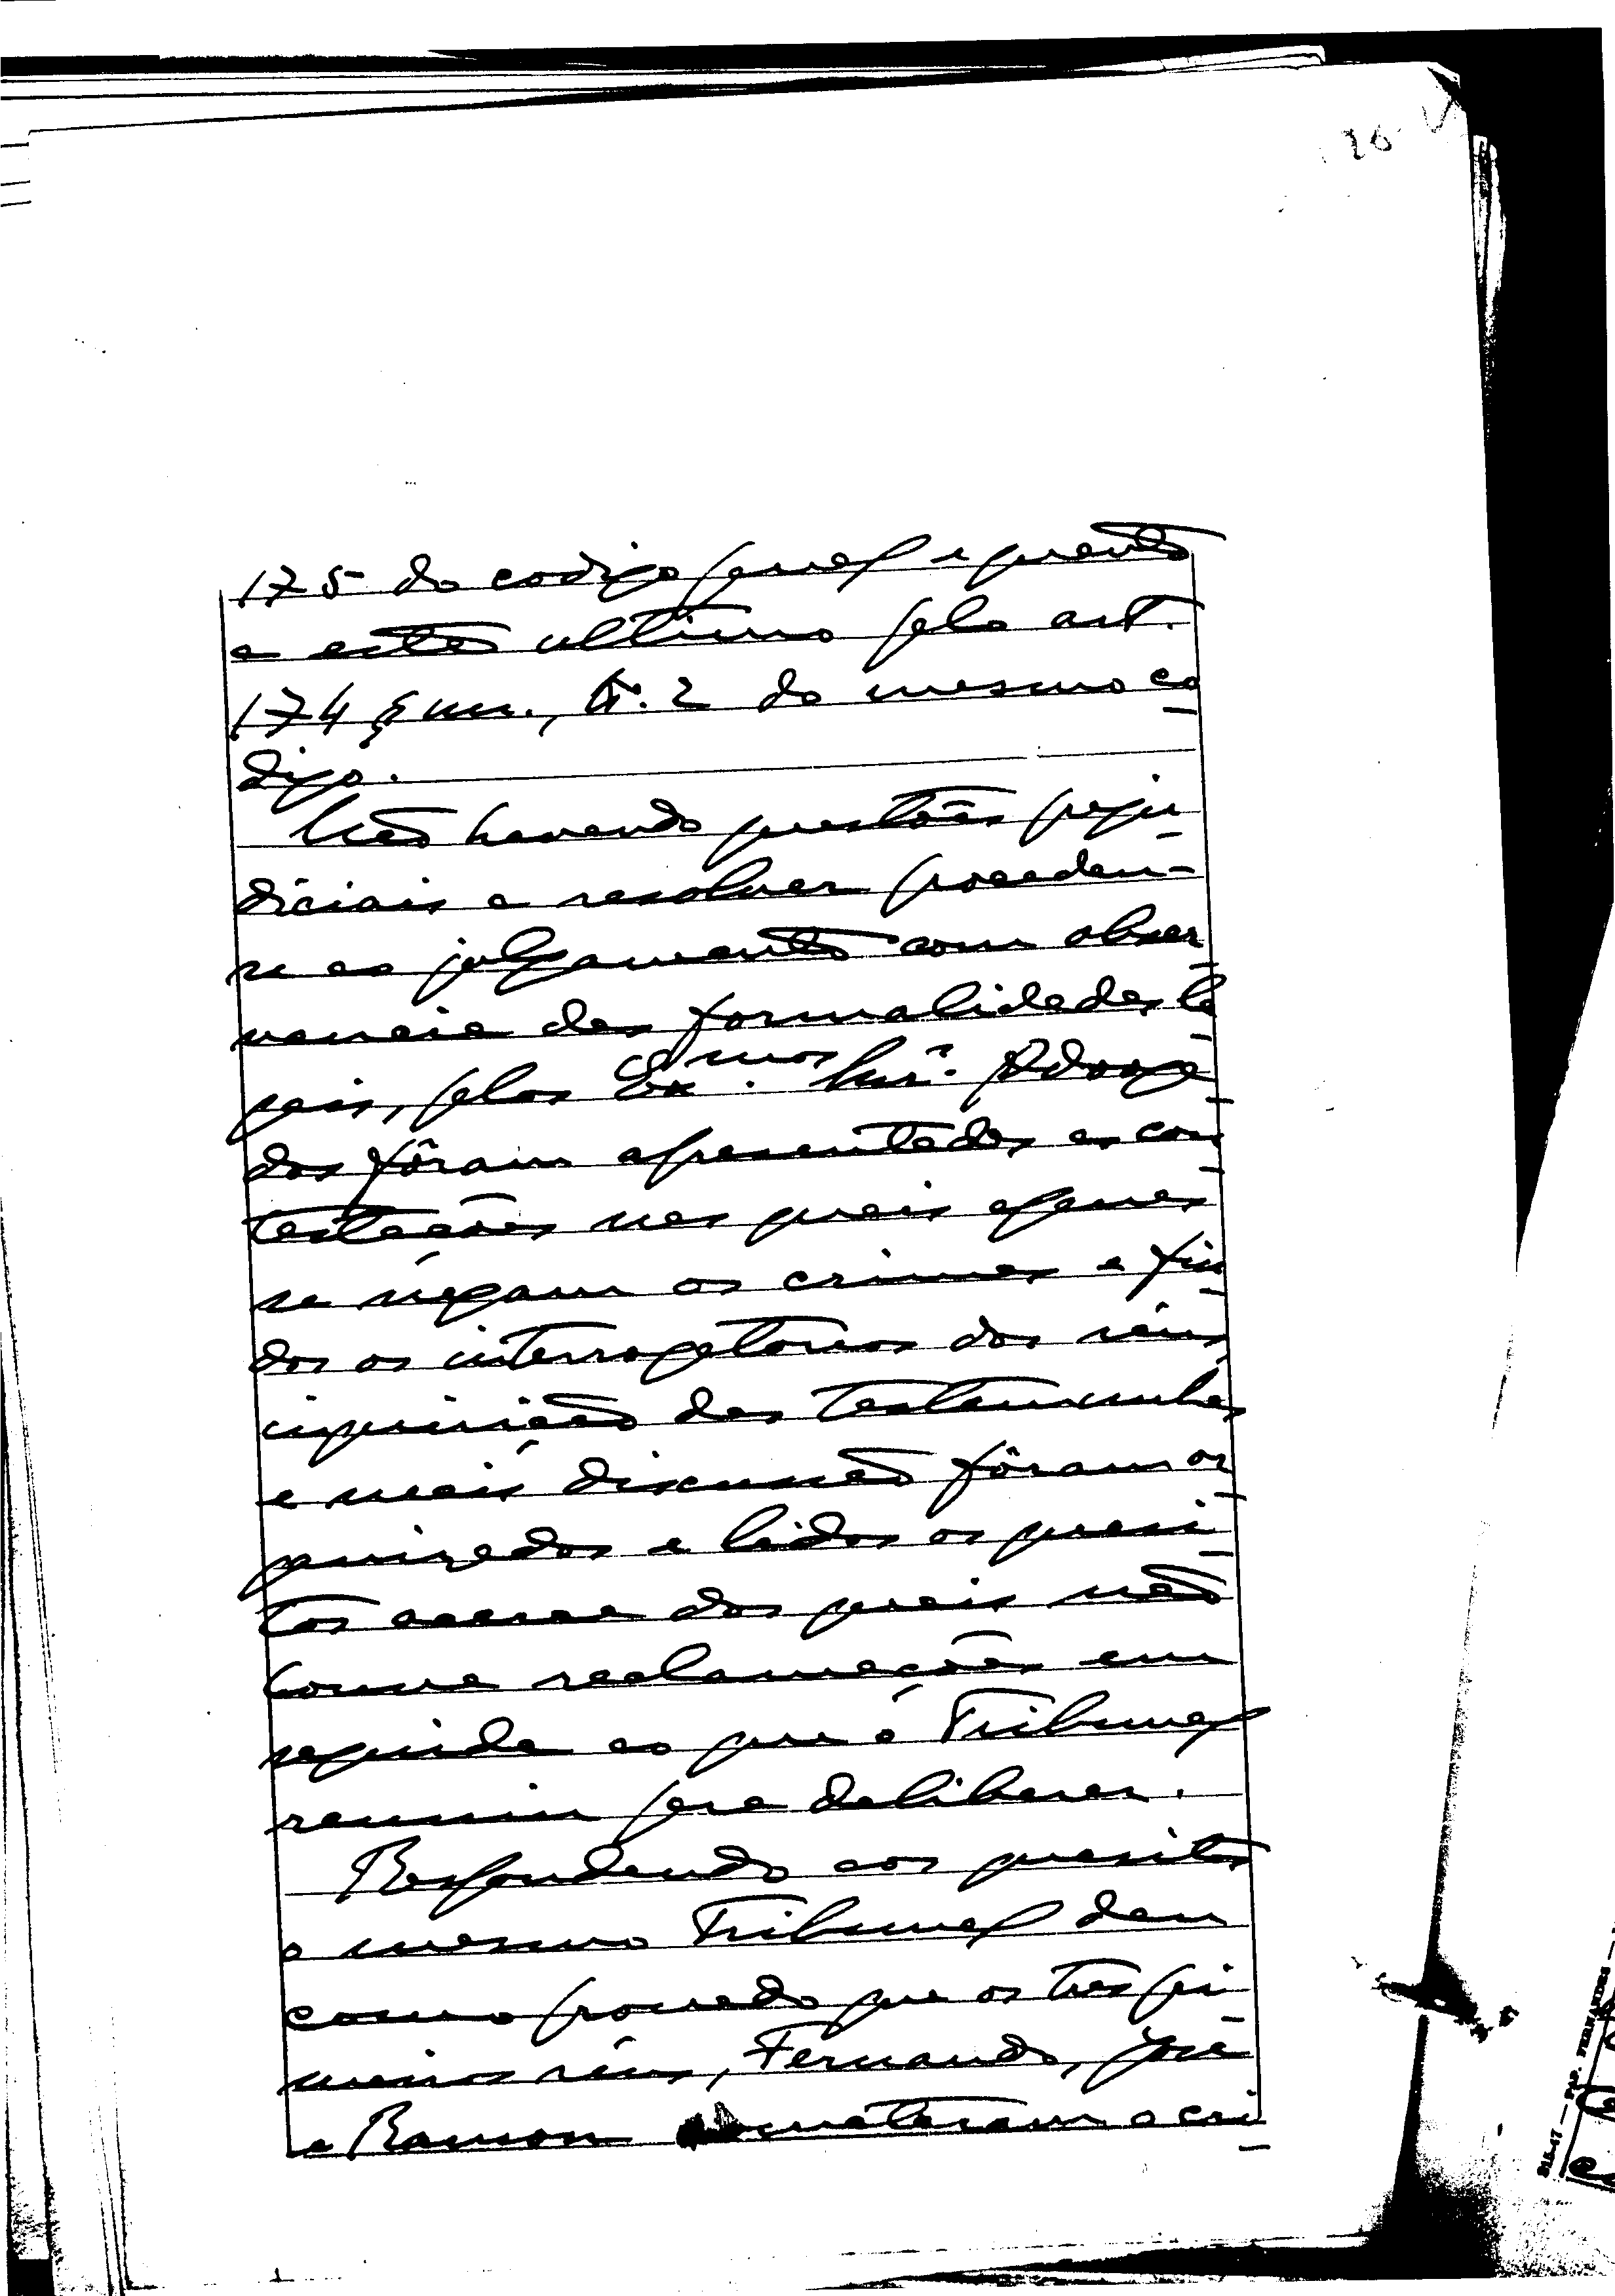 26 V
175 do codigo penal e quanto
a este ultimo pelo art.
174 § un., n.º 2 do mesmo co
digo.
Não havendo questões preju
diciais a resolver procedeu-
se ao julgamento com obser
vancia das formalidades le
gais, pelos Ex.mos Snr.s Advoga
dos fôram apresentadas as con
testações nas quais apenas
se négam os crimes e fin
dos os interrogatorios dos réus,
inquirição das testemunhas
e mais discussão fôram or
ganizados e lidos os quesi
tos acerca dos quais não
houve reclamações em
seguida ao que o Tribunal
reuniu para deliberar.
Respondendo aos quesitos
o mesmo Tribunal deu
como provado que os tres pri
meiros réus, Fernando, José
e Ramon cometeram o cri